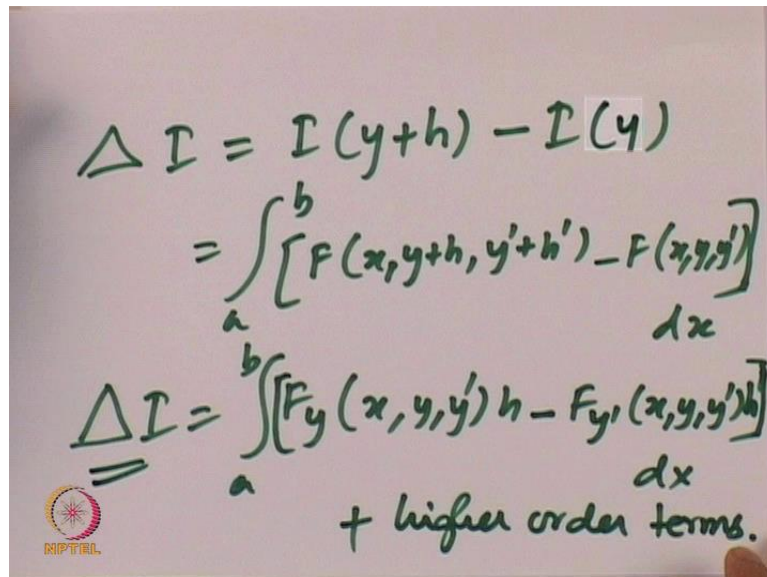 Δ I = I (y+h) − I (y)
= ∫_a^b [F (x, y+h, y'+h') − F (x,y,y')] dx
Δ I = ∫_a^b [F_y (x, y, y') h − F_y' (x,y,y') h'] dx
+ higher order terms.
NPTEL